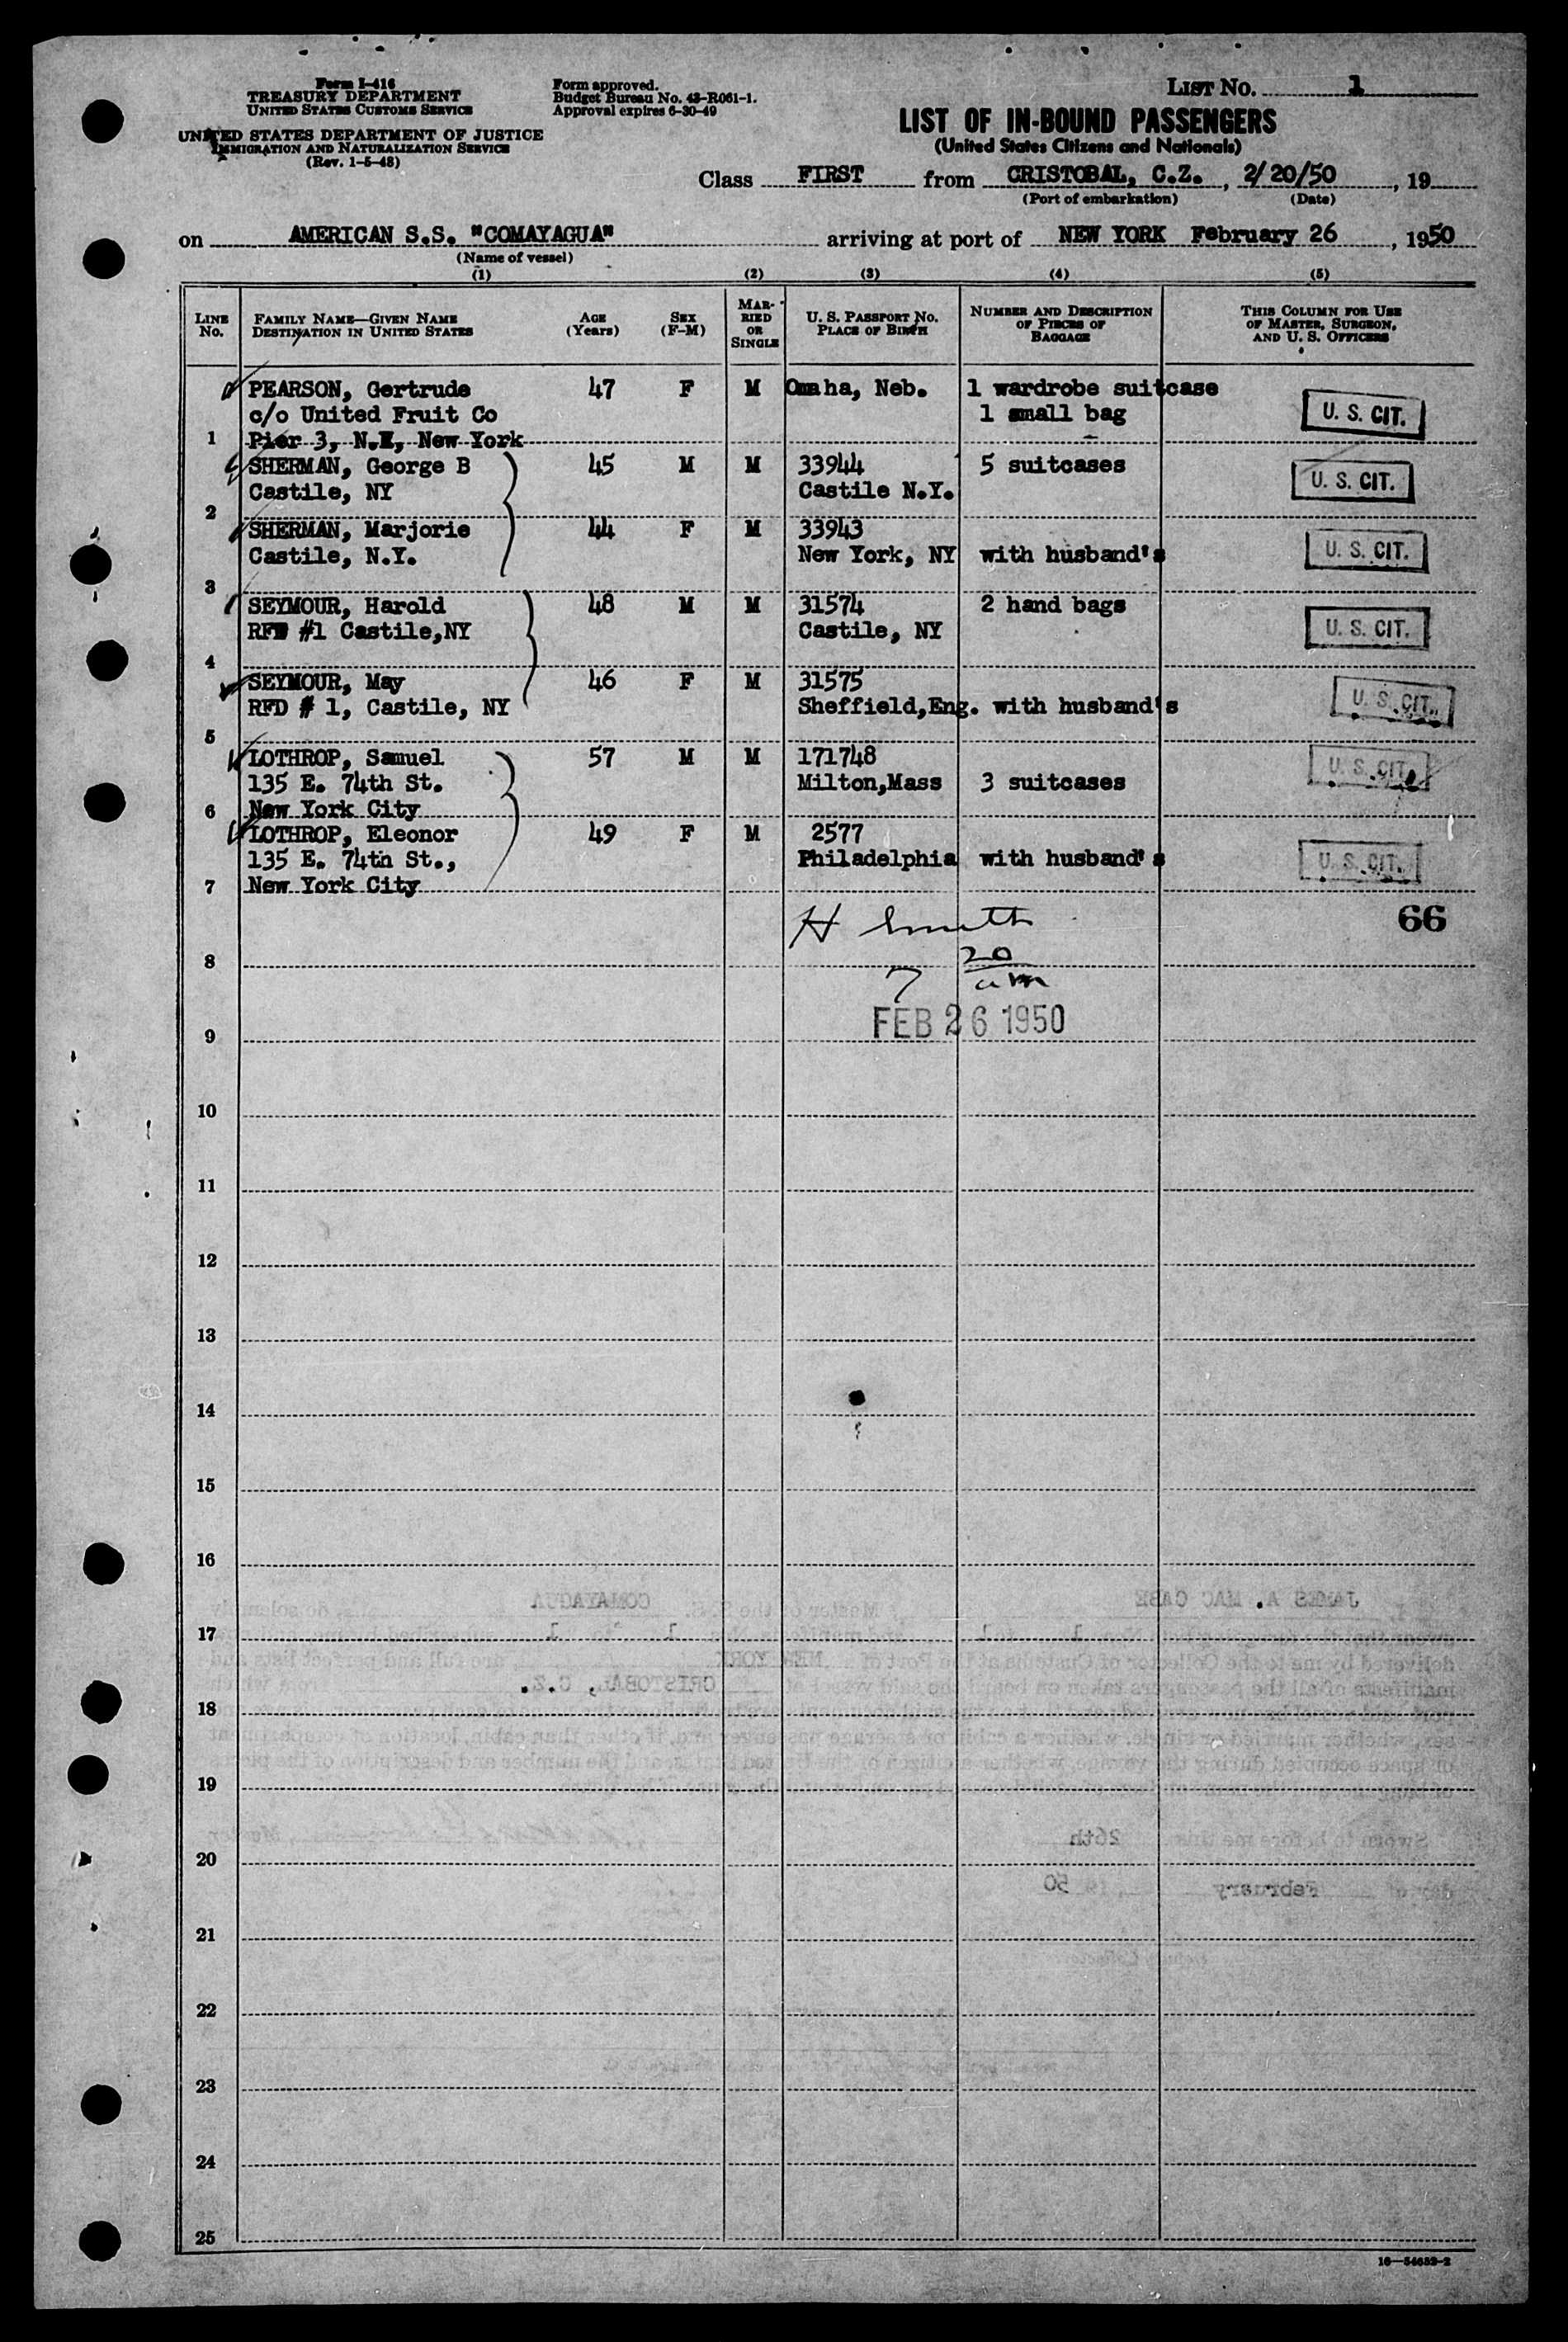 Form I-416
TREASURY DEPARTMENT
UNITED STATES CUSTOMS SERVICE
UNITED STATES DEPARTMENT OF JUSTICE
IMMIGRATION AND NATURALIZATION SERVICE
(Rev. 1-5-48)
Form approved.
Budget Bureau No. 43-R061-1.
Approval expires 6-30-49
LIST NO. 1
LIST OF IN-BOUND PASSENGERS
(United States Citizens and Nationals)
Class FIRST from CRISTOBAL, C.Z., 2/20/50, 19
(Port of embarkation) (Date)
on AMERICAN S.S. "COMAYAGUA" arriving at port of NEW YORK February 26, 1950
(Name of vessel)
(1) (2) (3) (4) (5)
LINE NO.
FAMILY NAME—GIVEN NAME
DESTINATION IN UNITED STATES
AGE (Years)
SEX (F-M)
MARRIED OR SINGLE
U. S. PASSPORT NO.
PLACE OF BIRTH
NUMBER AND DESCRIPTION OF PIECES OF BAGGAGE
THIS COLUMN FOR USE OF MASTER, SURGEON, AND U. S. OFFICERS
PEARSON, Gertrude 47 F M Omaha, Neb. 1 wardrobe suitcase
c/o United Fruit Co 1 small bag U. S. CIT.
1 Pier 3, N.R, New York
SHERMAN, George B 45 M M 33944 5 suitcases
Castile, NY Castile N.Y. U. S. CIT.
2
SHERMAN, Marjorie 44 F M 33943
Castile, N.Y. New York, NY with husband's U. S. CIT.
3
SEYMOUR, Harold 48 M M 31574 2 hand bags
RFD #1 Castile,NY Castile, NY U. S. CIT.
4
SEYMOUR, May 46 F M 31575
RFD # 1, Castile, NY Sheffield,Eng. with husband's U. S. CIT.
5
LOTHROP, Samuel 57 M M 171748
135 E. 74th St. Milton,Mass 3 suitcases U. S. CIT.
6 New York City
LOTHROP, Eleonor 49 F M 2577
135 E. 74th St., Philadelphia with husband's U. S. CIT.
7 New York City
H Smith 66
8
7 20 am
FEB 26 1950
9
10
11
12
13
14
15
16
JAMES A. MAC CABE COMAYAGUA
17
NEW YORK
CRISTOBAL, C.Z.
18
19
26th
20
February 50
21
22
23
24
25
16—54652-2